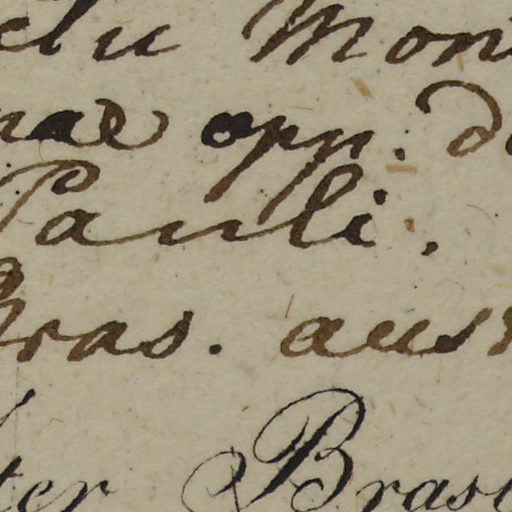 elu Mon
nae opp. d
Pauli.
Bras. aust
ter Bras